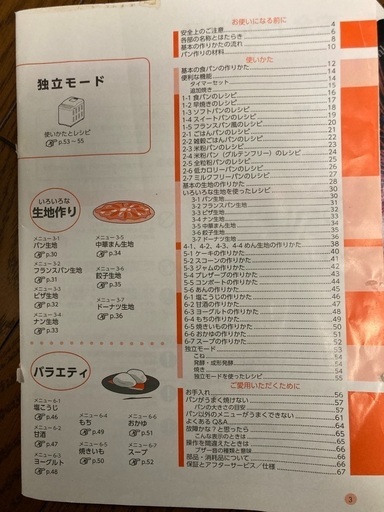 独立モード
使いかたとレシピ
p.53~55
いろいろな
生地作り
メニュー 3-1
パン生地
p.30
メニュー 3-2
フランスパン生地
p.31
メニュー 3-3
ピザ生地
p.32
メニュー 3-4
ナン生地
p.33
メニュー 3-5
中華まん生地
p.34
メニュー 3-6
餃子生地
p.35
メニュー 3-7
ドーナツ生地
p.36
バラエティ
メニュー 6-1
塩こうじ
p.46
メニュー 6-2
甘酒
p.47
メニュー 6-3
ヨーグルト
p.48
メニュー 6-4
もち
p.49
メニュー 6-5
焼きいも
p.50
メニュー 6-6
おかゆ
p.51
メニュー 6-7
スープ
p.52
お使いになる前に
安全上のご注意 4
各部の名称とはたらき 6
基本の作りかたの流れ 8
パン作りの材料 10
使いかた
基本の食パンの作りかた 12
便利な機能 14
タイマーセット 14
追加焼き 15
1-1 食パンのレシピ 16
1-2 早焼きのレシピ 17
1-3 ソフトパンのレシピ 18
1-4 スイートパンのレシピ 19
1-5 フランスパン風のレシピ 20
2-1 ごはんパンのレシピ 21
2-2 雑穀ごはんパンのレシピ 22
2-3 米粉パンのレシピ 23
2-4 米粉パン（グルテンフリー）のレシピ 24
2-5 全粒粉パンのレシピ 25
2-6 低カロリーパンのレシピ 26
2-7 ミルクフリーパンのレシピ 27
基本の生地の作りかた 28
いろいろな生地を使ったレシピ 30
3-1 パン生地 30
3-2 フランスパン生地 31
3-3 ピザ生地 32
3-4 ナン生地 33
3-5 中華まん生地 34
3-6 餃子生地 35
3-7 ドーナツ生地 36
4-1、4-2、4-3、4-4 めん生地の作りかた 38
5-1 ケーキの作りかた 40
5-2 スコーンの作りかた 41
5-3 ジャムの作りかた 42
5-4 プレザーブの作りかた 43
5-5 コンポートの作りかた 44
5-6 あんの作りかた 45
6-1 塩こうじの作りかた 46
6-2 甘酒の作りかた 47
6-3 ヨーグルトの作りかた 48
6-4 もちの作りかた 49
6-5 焼きいもの作りかた 50
6-6 おかゆの作りかた 51
6-7 スープの作りかた 52
独立モード 53
こね 54
発酵・成形発酵 54
焼き 54
独立モードを使ったレシピ 55
ご愛用いただくために
お手入れ 56
パンがうまく焼けない 57
パンの大きさの目安 57
パン以外のメニューがうまくできない 60
よくあるQ&A 62
故障かな？と思ったら 64
こんな表示のときは 65
操作を間違えたときは 65
ブザー音の種類と意味 66
部品・消耗品について 66
保証とアフターサービス／仕様 67
3